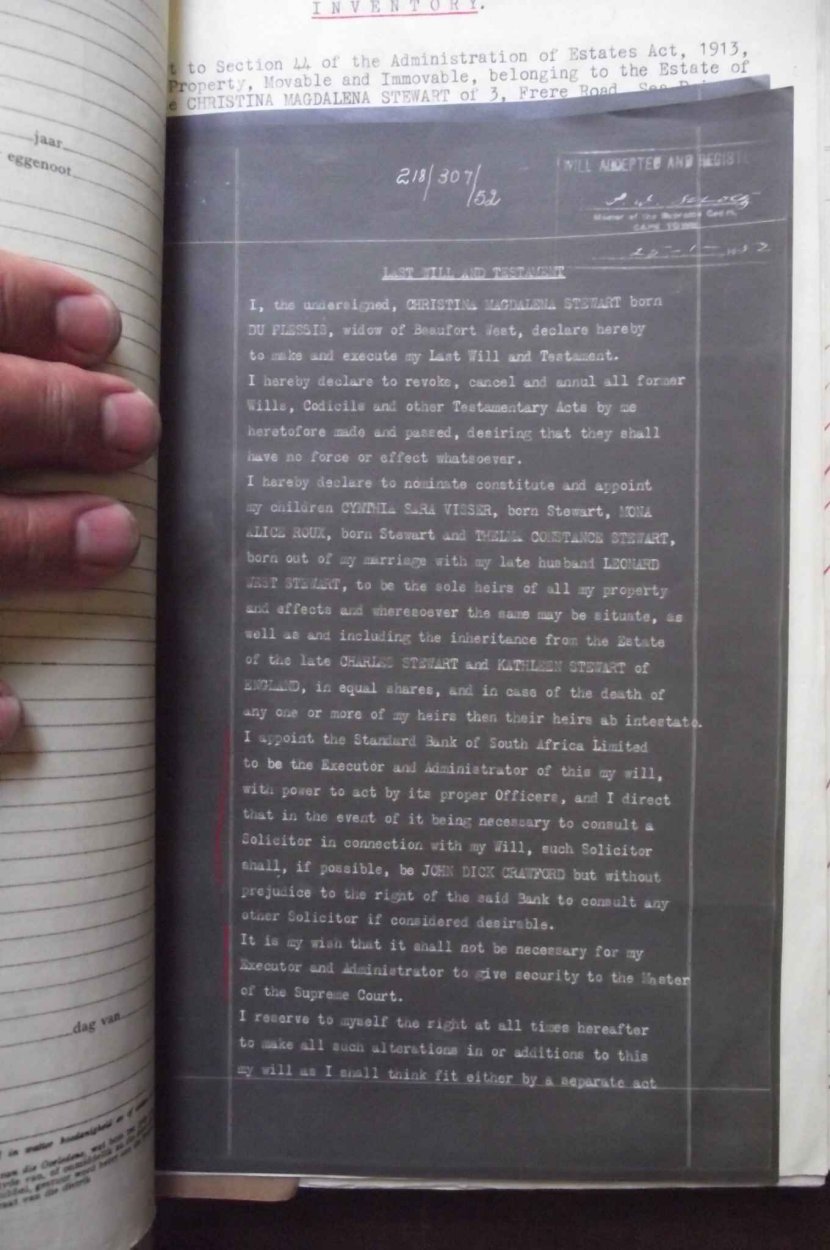 INVENTORY.
t to Section 44 of the Administration of Estates Act, 1913,
Property, Movable and Immovable, belonging to the Estate of
e CHRISTINA MAGDALENA STEWART of 3, Frere Road, Sea
jaar
eggenoot
218/307/52
WILL ACCEPTED AND REGIST
Master of the Supreme Court,
CAPE TOWN
LAST WILL AND TESTAMENT
I, the undersigned, CHRISTINA MAGDALENA STEWART born
DU PLESSIS, widow of Beaufort West, declare hereby
to make and execute my Last Will and Testament.
I hereby declare to revoke, cancel and annul all former
Wills, Codicils and other Testamentary Acts by me
heretofore made and passed, desiring that they shall
have no force or effect whatsoever.
I hereby declare to nominate constitute and appoint
my children CYNTHIA SARA VISSER, born Stewart, MONA
ALICE ROUX, born Stewart and THELMA CONSTANCE STEWART,
born out of my marriage with my late husband LEONARD
WEST STEWART, to be the sole heirs of all my property
and effects and wheresoever the same may be situate, as
well as and including the inheritance from the Estate
of the late CHARLES STEWART and KATHLEEN STEWART of
ENGLAND, in equal shares, and in case of the death of
any one or more of my heirs then their heirs ab intestato.
I appoint the Standard Bank of South Africa Limited
to be the Executor and Administrator of this my will,
with power to act by its proper Officers, and I direct
that in the event of it being necessary to consult a
Solicitor in connection with my Will, such Solicitor
shall, if possible, be JOHN DICK CRAWFORD but without
prejudice to the right of the said Bank to consult any
other Solicitor if considered desirable.
It is my wish that it shall not be necessary for my
Executor and Administrator to give security to the Master
of the Supreme Court.
I reserve to myself the right at all times hereafter
to make all such alterations in or additions to this
my will as I shall think fit either by a separate act
dag van